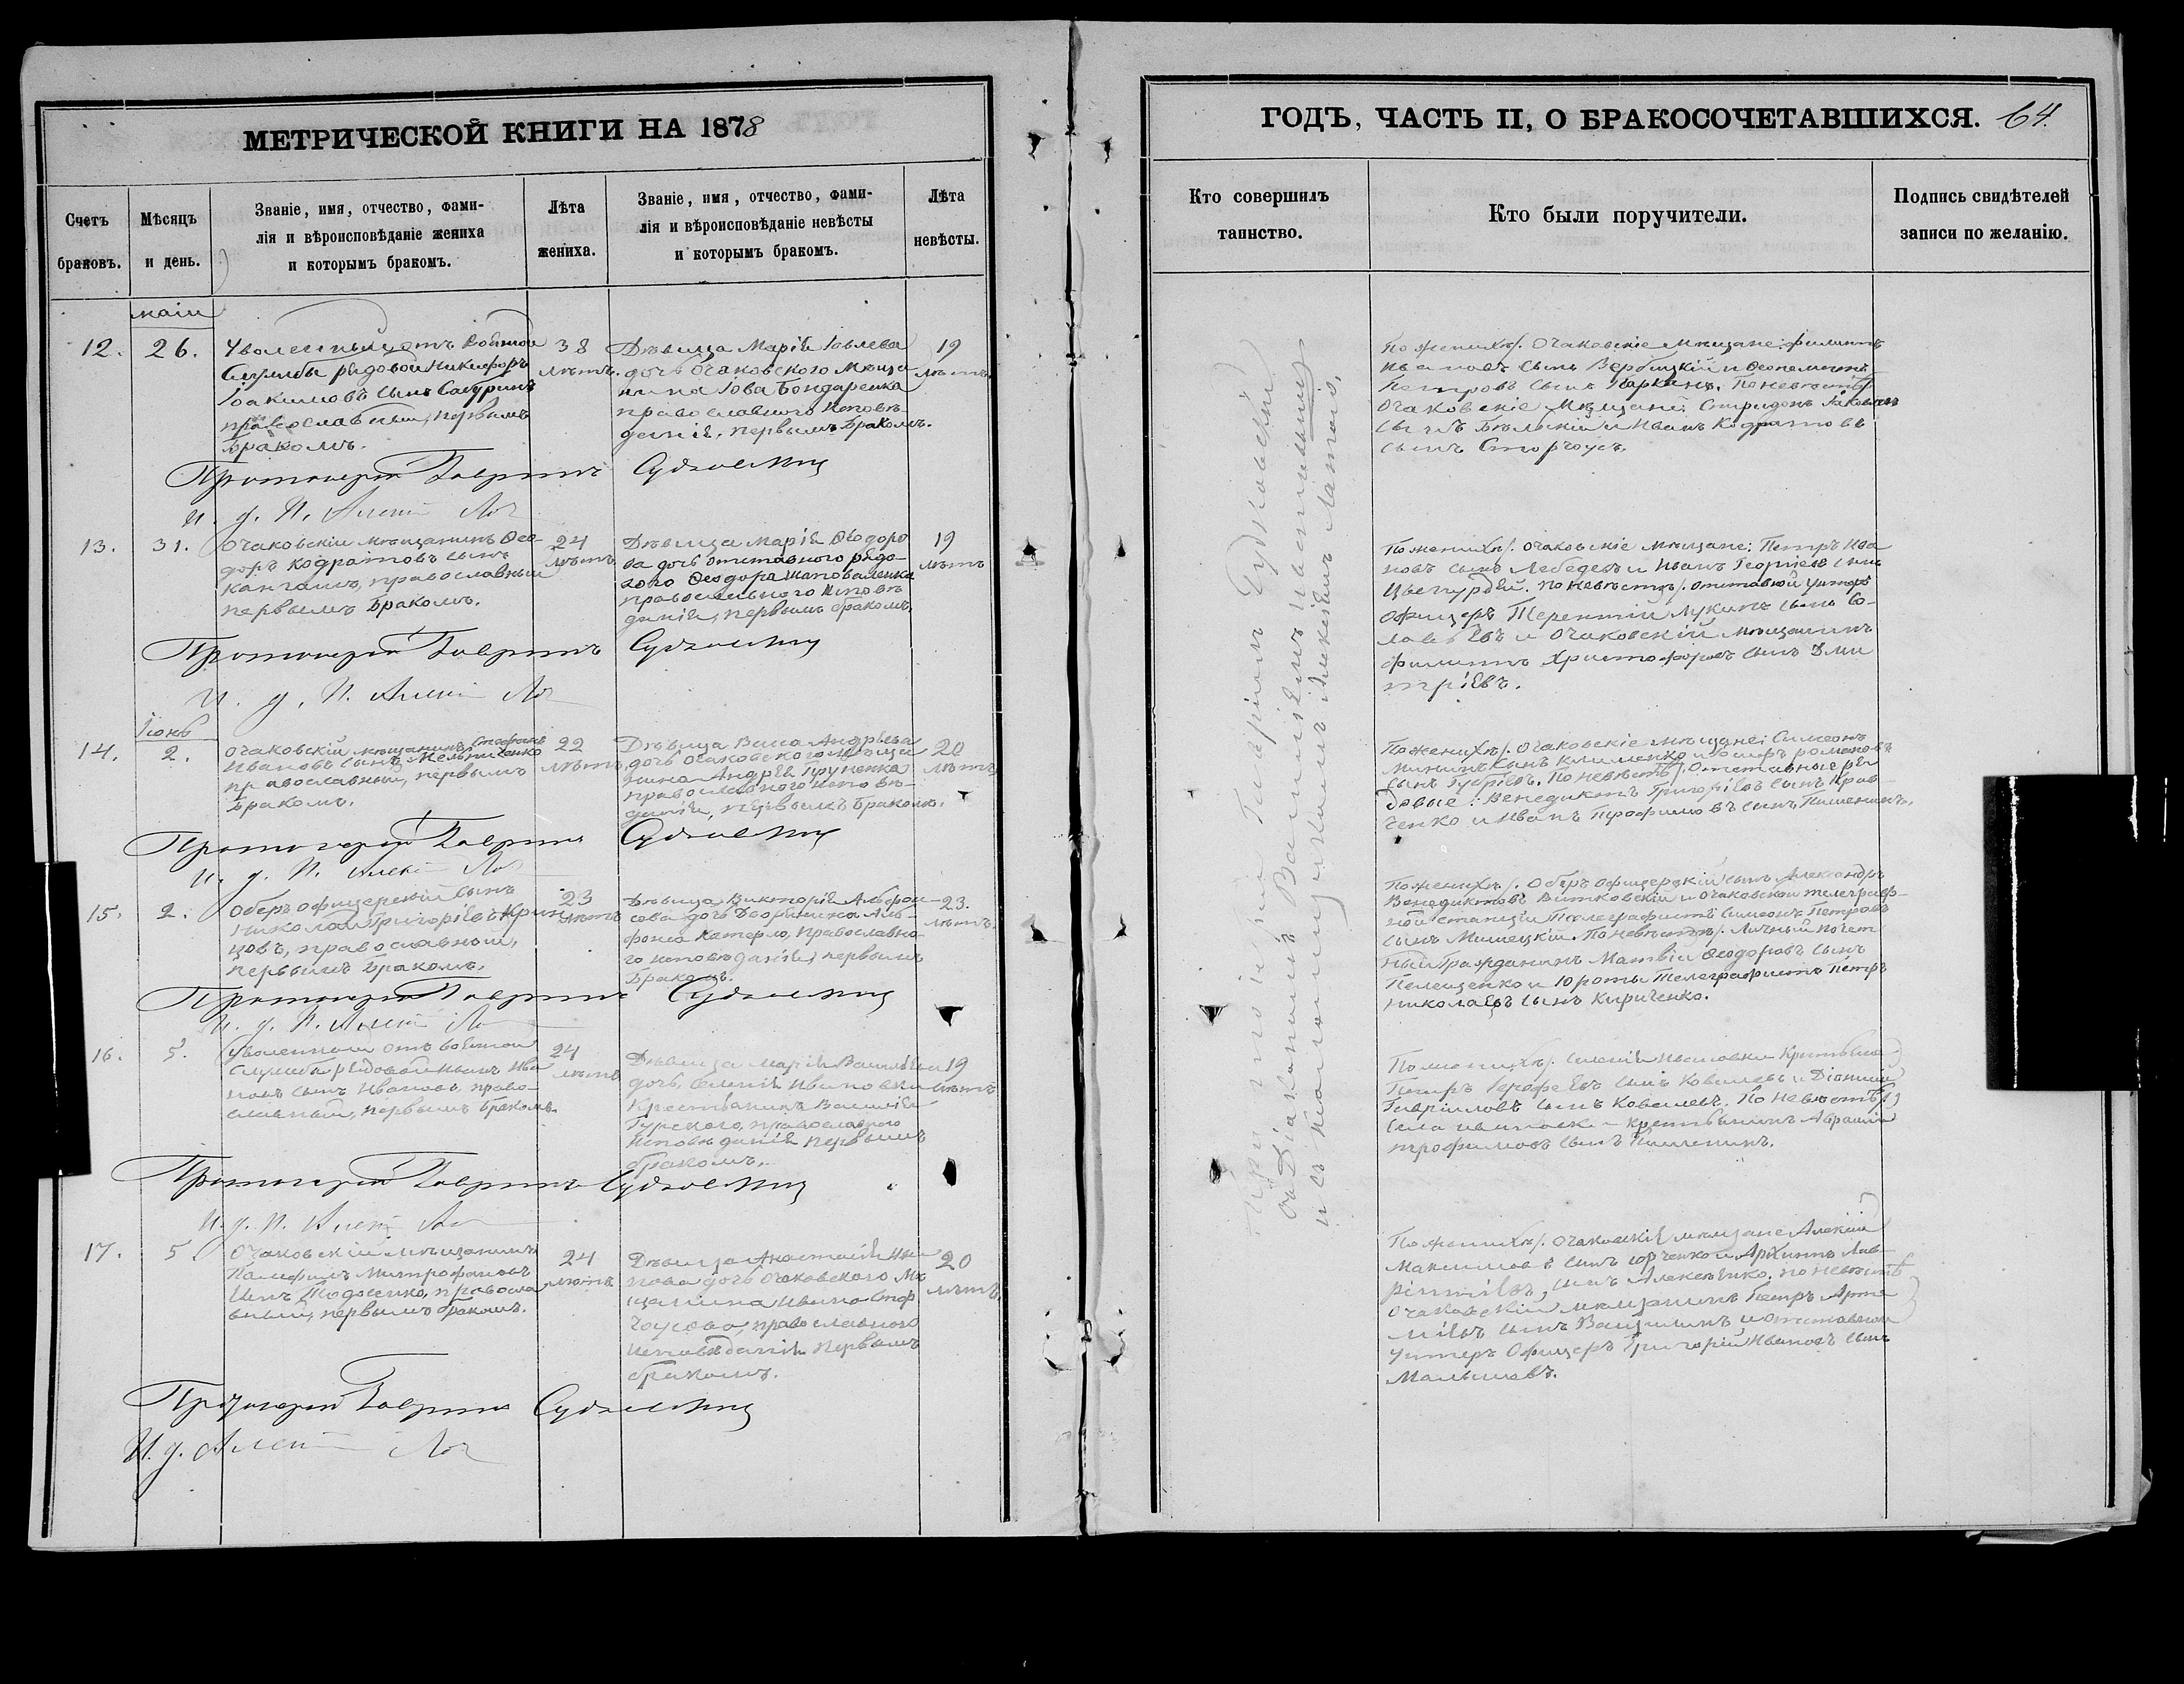 МЕТРИЧЕСКОЙ КНИГИ НА 1878
Счетъ
браковъ.
Мѣсяцъ
и день.
Званіе, имя, отчество, фами-
лія и вѣроисповѣданіе жениха
и которымъ бракомъ.
Лѣта
жениха.
Званіе, имя, отчество, фами-
лія и вѣроисповѣданіе невѣсты
и которымъ бракомъ.
Лѣта
невѣсты.
маія
12.
26.
Уволенный отъ военной
службы рядовой Никифоръ
Іоакимовъ сынъ
православный, первымъ
бракомъ.
38
лѣтъ.
Дѣвица Марія Іовлева
дочь Очаковскаго мѣща
нина Іова Бондаренка
православнаго исповѣ-
данія, первымъ бракомъ.
19
лѣтъ.
Протоіерей Гавріилъ Судковскій
И. д. П. Алексій
13.
31.
Очаковскій мѣщанинъ Ѳео-
доръ Кодратовъ сынъ
православный
первымъ бракомъ.
24
лѣтъ
Дѣвица Марія Ѳеодоро
ва дочь отставного рядо-
вого Ѳеодора Шаповаленка
православнаго исповѣ
данія, первымъ бракомъ.
19
лѣтъ
Протоіерей Гавріилъ Судковскій
И. д. П. Алексій
Іюнь
14.
2.
Очаковскій мѣщанинъ Стефанъ
Ивановъ сынъ Мельниченко
православный, первымъ
бракомъ.
22
лѣтъ
Дѣвица Васса Андреева
дочь Очаковскаго мѣща
нина Андрея Груненка
православнаго исповѣ-
данія, первымъ бракомъ.
20
лѣтъ
Протоіерей Гавріилъ Судковскій
И. д. П. Алексій
15.
2.
Оберъ офицерскій сынъ
Николай Григоріевъ
цовъ, православный,
первымъ бракомъ.
23
лѣтъ
Дѣвица Викторія Альфон-
сова дочь Дворянина Аль-
фонса православна-
го исповѣданія, первымъ
бракомъ.
23.
лѣтъ.
Протоіерей Гавріилъ Судковскій
И. д. П. Алексій
16.
5.
Уволенный отъ военной
службы рядовой Иванъ Ива
новъ сынъ Ивановъ, право-
славный, первымъ бракомъ.
24
лѣтъ
Дѣвица Марія Василіева
дочь, селенія Ивановки
Крестьянина Василія
Гурского, православнаго
исповѣданія первымъ
бракомъ.
19
лѣтъ
Протоіерей Гавріилъ Судковскій
И. д. П. Алексій
17.
5
Очаковскій мѣщанинъ
Памфилъ Митрофановъ
сынъ православ
ный, первымъ бракомъ.
24
лѣтъ
Дѣвица Анастасія Ива
нова дочь Очаковского мѣ
щанина Ивана Стор
чоусова, православного
исповѣданія первымъ
бракомъ.
20
лѣтъ.
Протоіерей Гавріилъ Судковскій
И. д. Алексій
ГОДЪ, ЧАСТЬ II, О БРАКОСОЧЕТАВШИХСЯ. 64.
Кто совершилъ
таинство.
Кто были поручители.
Подпись свидѣтелей
записи по желанію.
Протоіерей Гавріилъ Судковскій
съ Діакономъ Василіемъ
и съ Псаломщикомъ Алексіемъ
По женихѣ: Очаковскіе мѣщане: Филиппъ
Ивановъ сынъ Вербицкій и
Петровъ сынъ По невѣстѣ
Очаковскіе мѣщане: Спиридонъ Яковлевъ
сынъ Бѣльскій и Иванъ Кодратовъ
сынъ Сторчоусъ.
По женихѣ: Очаковскіе мѣщане: Петръ Ива
новъ сынъ Лебедевъ и Иванъ Георгіевъ сынъ
По невѣстѣ: отставной унтеръ
офицеръ Терентій Лукинъ сынъ Со-
ловьевъ и Очаковскій мѣщанинъ
Филиппъ Христофоровъ сынъ Дми
тріевъ.
По женихѣ: Очаковскіе мѣщане: Симеонъ
Мининъ сынъ Клименко и Іосифъ Романовъ
сынъ По невѣстѣ: Отставные ря
довые: Венедиктъ Григоріевъ сынъ Крав-
ченко и Иванъ Трофимовъ сынъ Пименинъ.
По женихѣ: Оберъ офицерскій сынъ Александръ
Венедиктовъ Витковскій и Очаковской телеграф-
ной станціи Телеграфистъ Симеонъ Петровъ
сынъ Мишецкій. По невѣстѣ: Личный почет
ный Гражданинъ Матвій Ѳеодоровъ сынъ
Пелещенко и 10 роты Телеграфистъ Петръ
Николаевъ сынъ Кириченко.
По женихѣ: селенія Ивановки Крестьяне
Петръ Іерофеевъ сынъ Ковалевъ и Діонисій
Гавріиловъ сынъ Ковалевъ. По невѣстѣ
села Ивановки крестьянинъ Авраамъ
Трофимовъ сынъ Пименинъ.
По женихѣ: Очаковскіе мѣщане Алексій
Максимовъ сынъ Юрченко и Архиппъ Лав-
рентіевъ, сынъ Алексѣенко. по невѣстѣ
Очаковскій мѣщанинъ Петръ Арте
міевъ сынъ Ващилинъ и отставной
Унтеръ Офицеръ Григорій Ивановъ сынъ
Малышевъ.